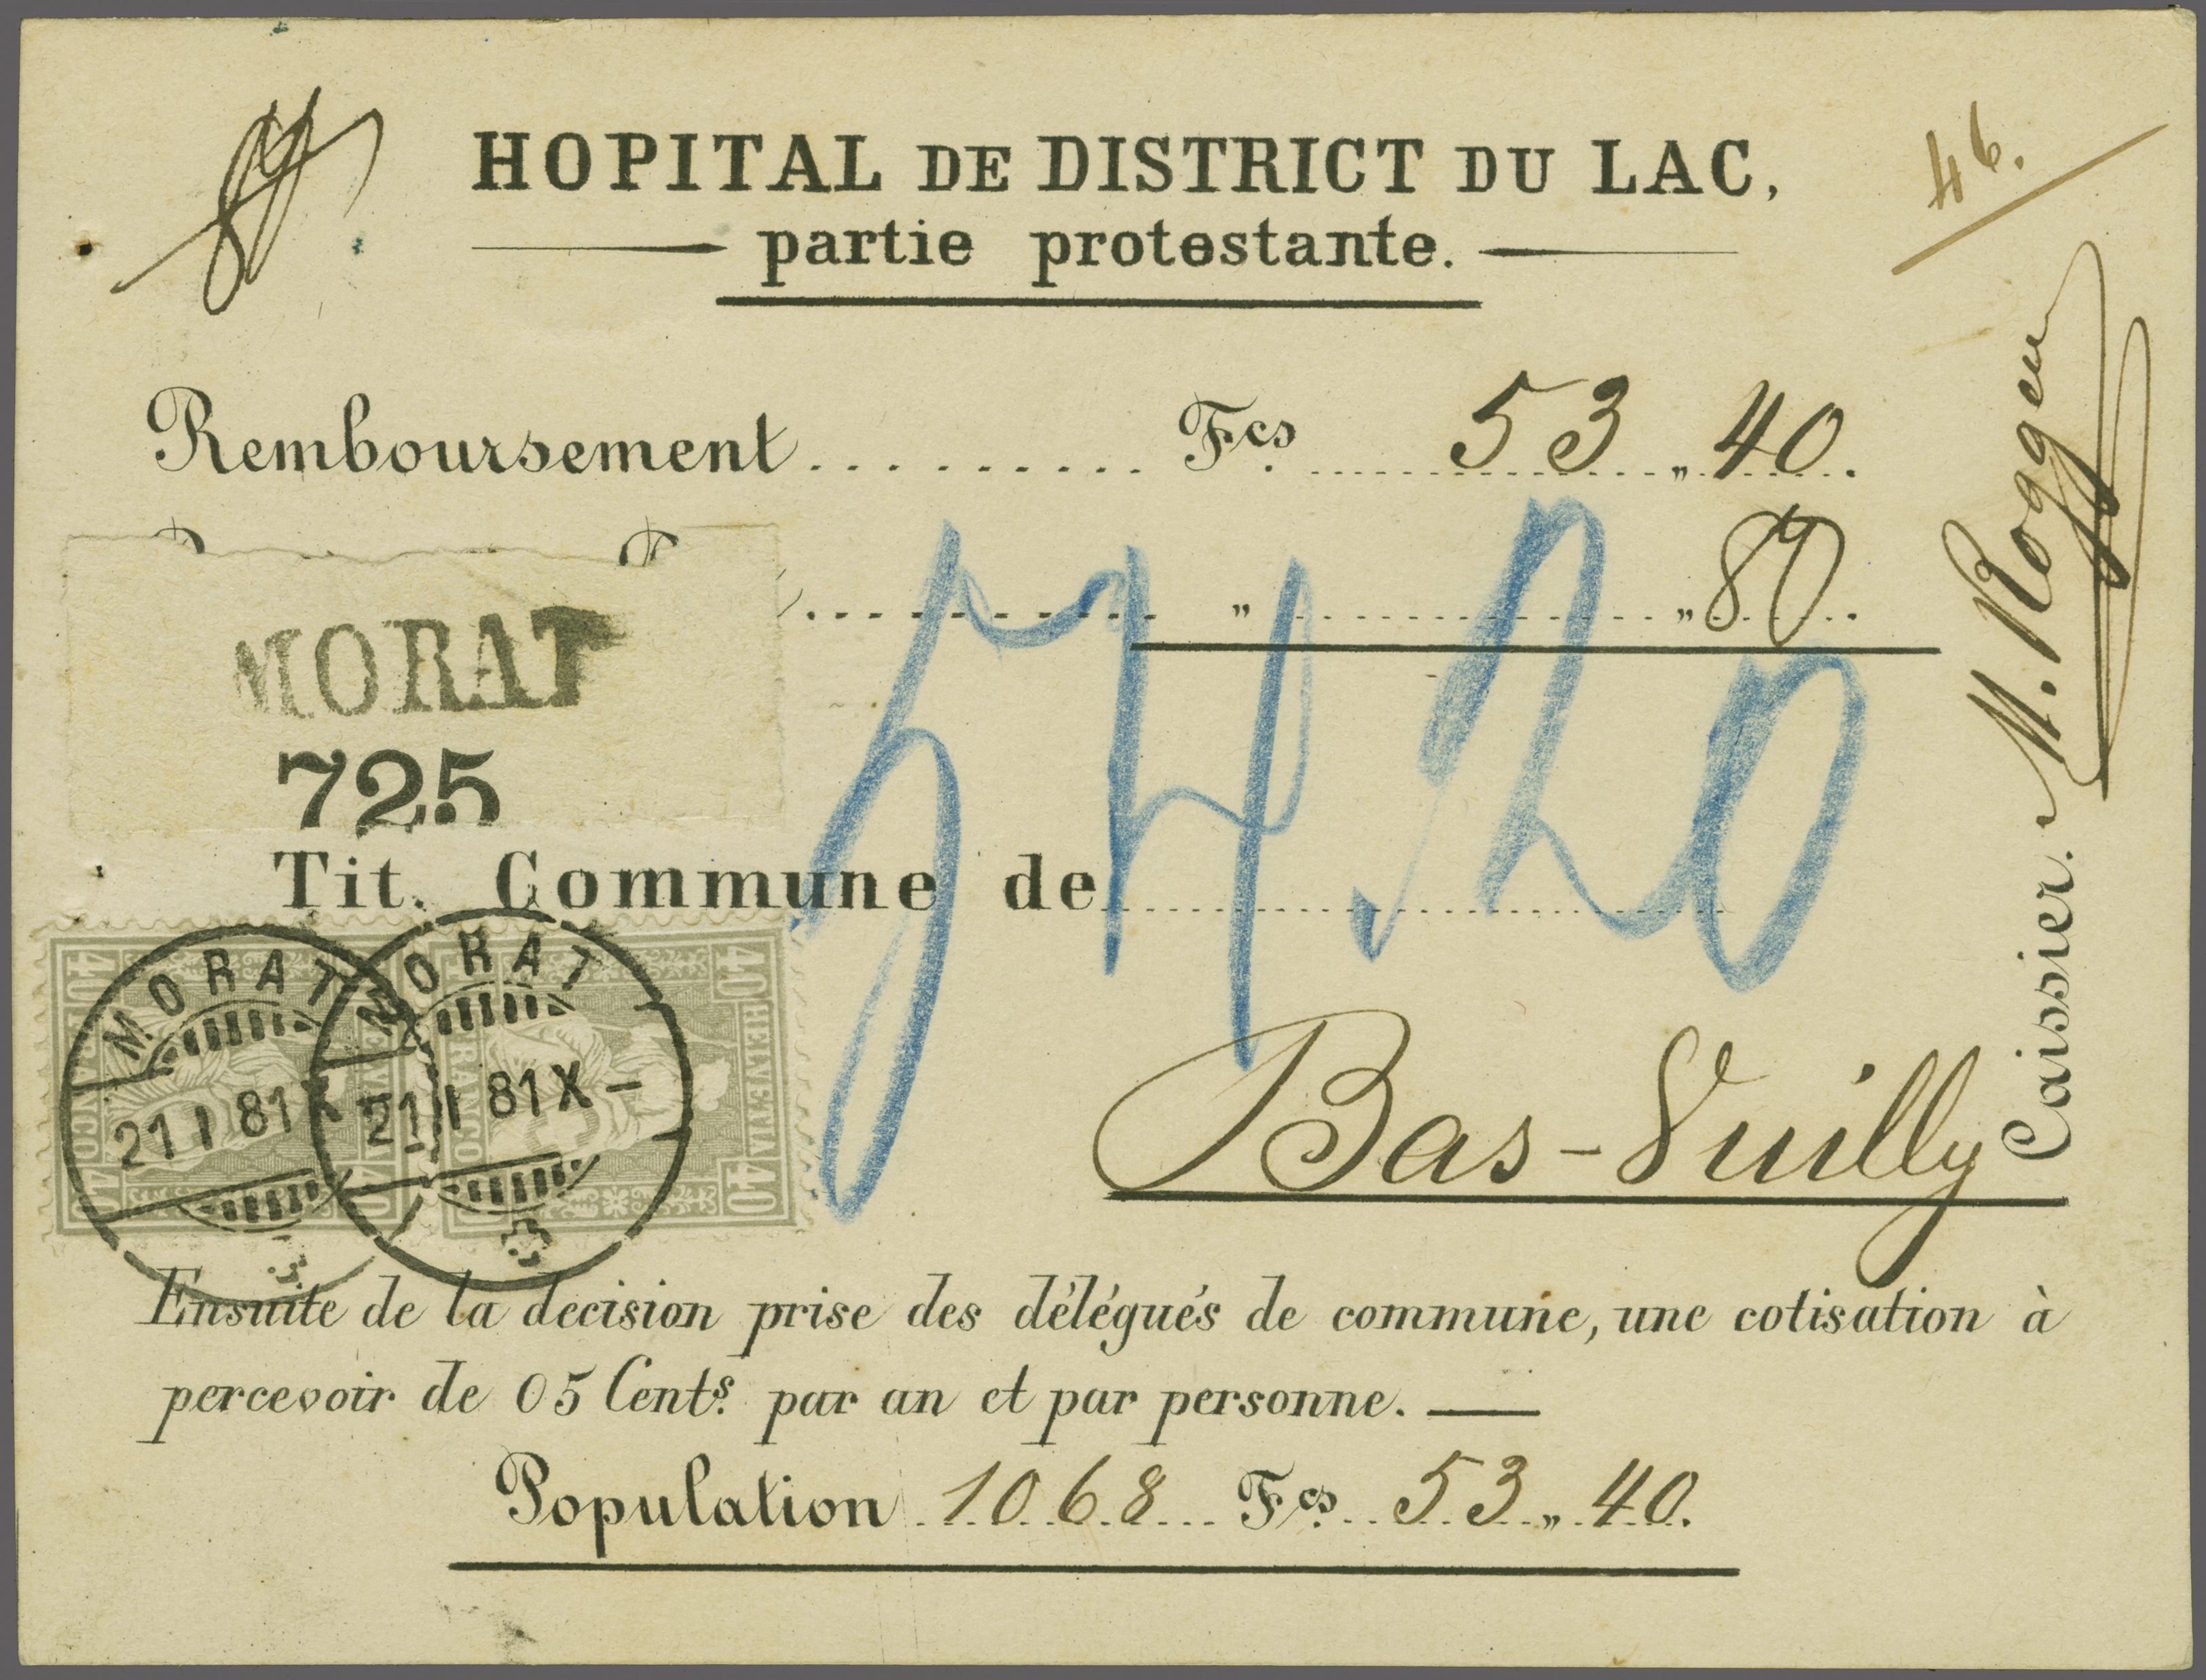 HOPITAL DE DISTRICT DU LAC,
46.
partie protestante.
Remboursement .......... Fcs. 53 „ 40.
„ „ 80.
MORAT
725
54.20
Tit. Commune de
MORAT
21 I 81 X
MORAT
21 I 81 X –
40 HELVETIA 40
FRANCO
Bas-Vuilly
Caissier. M. Roggen
Ensuite de la decision prise des délégués de commune, une cotisation à
percevoir de 05 Cents. par an et par personne. —
Population 1068 Fcs. 53 „ 40.